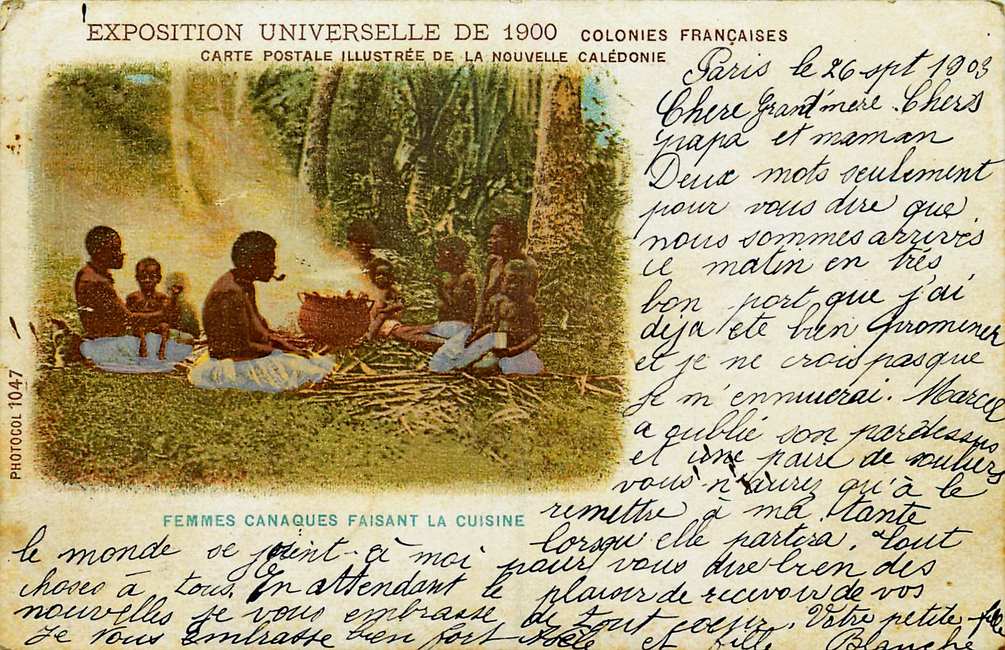 EXPOSITION UNIVERSELLE DE 1900 COLONIES FRANÇAISES
CARTE POSTALE ILLUSTRÉE DE LA NOUVELLE CALÉDONIE
Paris le 26 spt 1903
Chere Grand'mère. Chers
papa et maman
Deux mots seulement
pour vous dire que
nous sommes arrivés
ce matin en très
bon port que j'ai
déja été bien promener
et je ne crois pas que
je m'ennuierai. Marcel
a oublié son pardessus
et une paire de souliers
vous n'aurez qu'à le
remettre à ma tante
lorsqu'elle partira. Tout
le monde se joint à moi pour vous dire bien des
choses à tous. En attendant le plaisir de recevoir de vos
nouvelles je vous embrasse de tout coeur. Votre petite fille
Je vous embrasse bien fort et fille Blanche
FEMMES CANAQUES FAISANT LA CUISINE
PHOTOCOL 1047